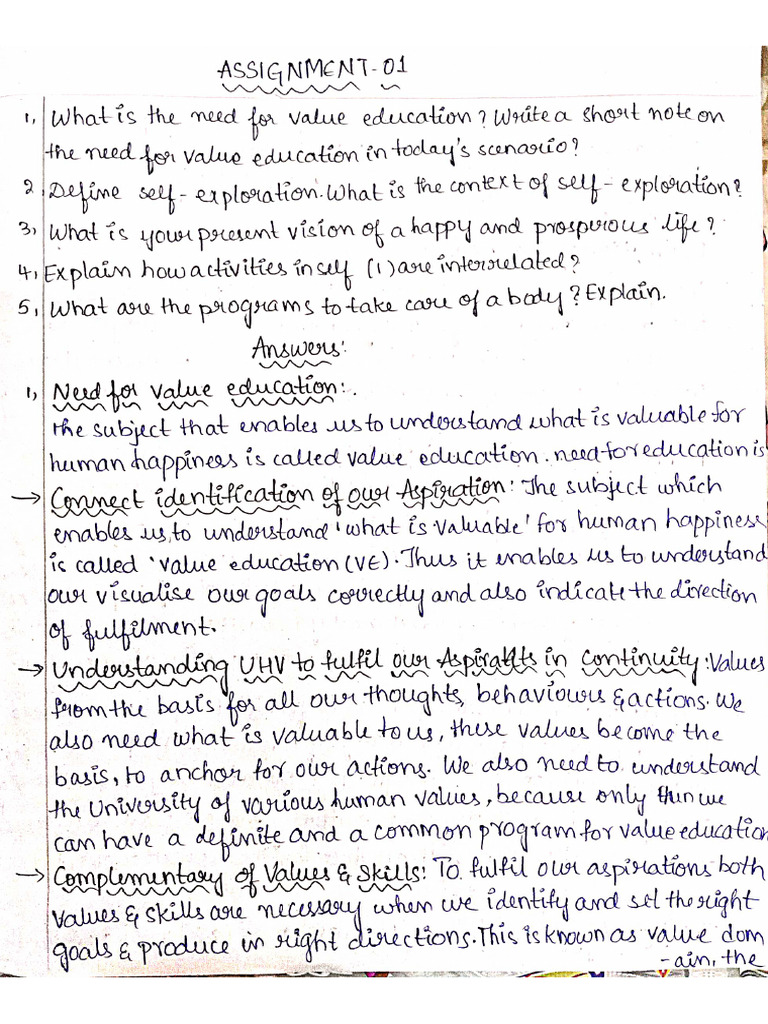 ASSIGNMENT-01
1, What is the need for value education? Write a short note on
the need for value education in today's scenario?
2. Define self-exploration. What is the context of self-exploration?
3, What is your present vision of a happy and prosperous life?
4, Explain how activities in self (1) are interrelated?
5, What are the programs to take care of a body? Explain.
Answers:
1, Need for value education:.
the subject that enables us to understand what is valuable for
human happiness is called value education. need for education is
→ Connect identification of our Aspiration: The subject which
enables us, to understand 'what is valuable' for human happiness
is called 'value education (VE). Thus it enables us to understand
our visualise our goals correctly and also indicate the direction
of fulfilment.
→ Understanding UHV to fulfil our Aspirations in Continuity: Values
from the basis for all our thoughts, behaviours & actions. We
also need what is valuable to us, these values become the
basis, to anchor for our actions. We also need to understand
the University of various human values, because only then we
can have a definite and a common program for value education
→ Complementary of Values & Skills: To fulfil our aspirations both
values & skills are necessary when we identify and set the right
goals & produce in right directions. This is known as value dom
-ain, the